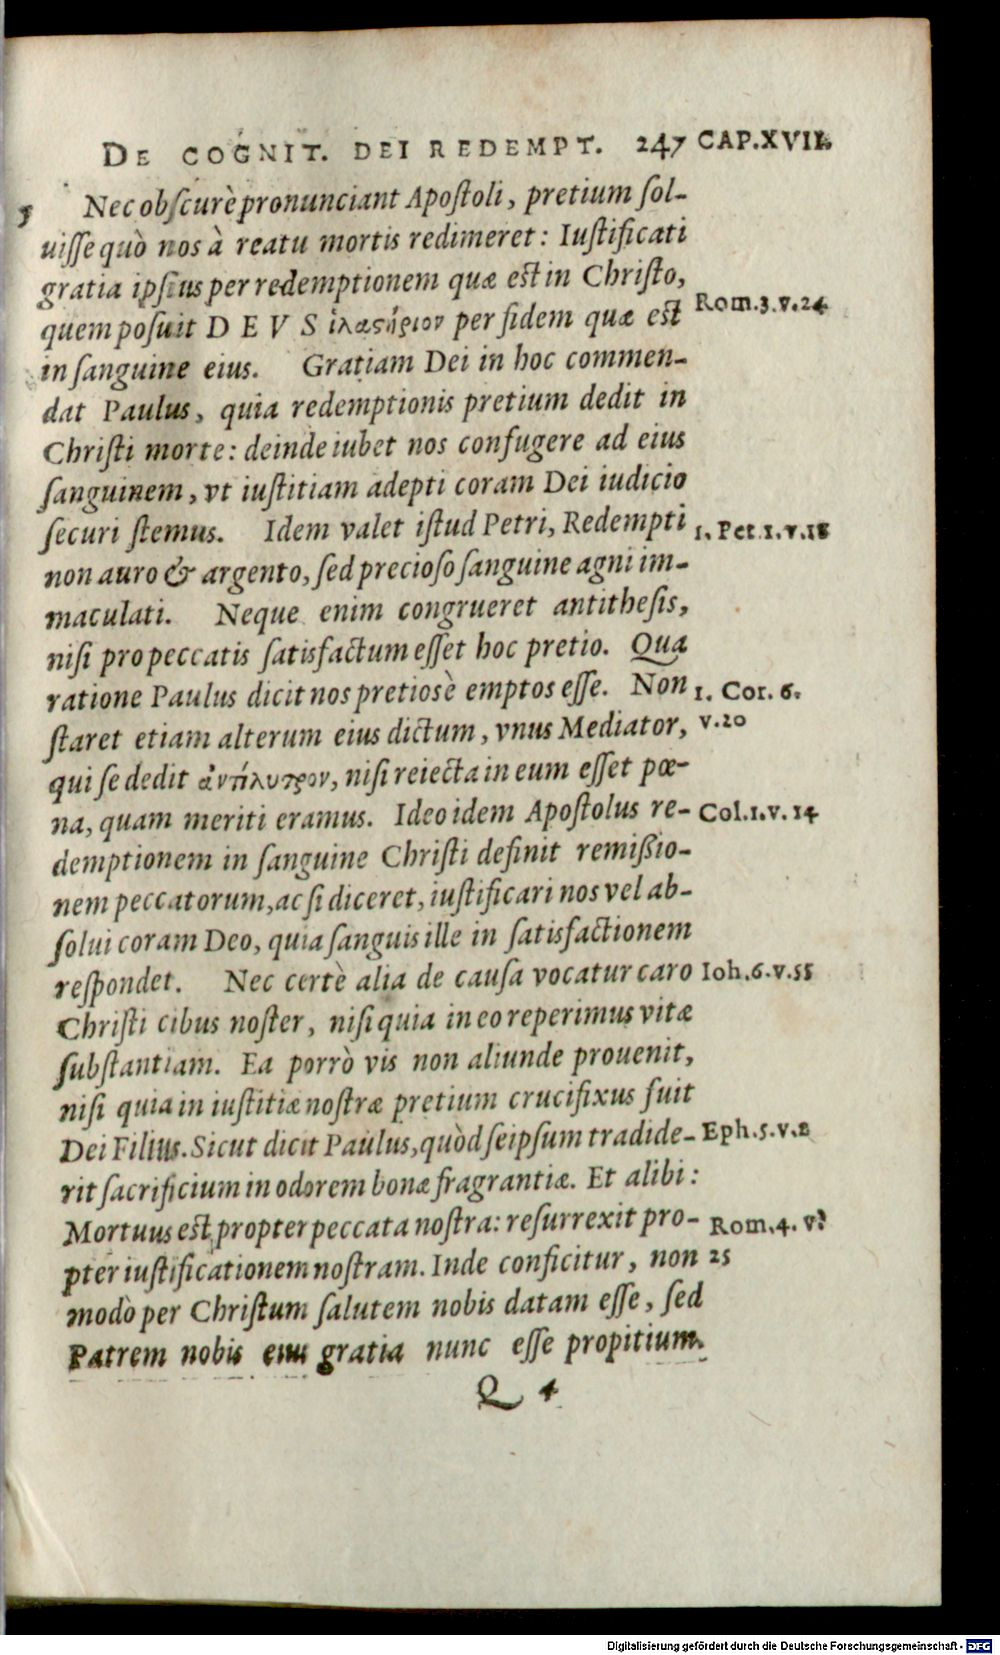 DE COGNIT. DEI REDEMPT. 247 CAP.XVII.
5 Nec obſcurè pronunciant Apoſtoli, pretium ſol-
uiſſe quò nos à reatu mortis redimeret: Iuſtificati
gratia ipſius per redemptionem quæ eſt in Chriſto,
quem poſuit DEVS ἱλαϛήριον per fidem quæ eſt
Rom.3.v.24
in ſanguine eius. Gratiam Dei in hoc commen-
dat Paulus, quia redemptionis pretium dedit in
Chriſti morte: deinde iubet nos confugere ad eius
ſanguinem, vt iuſtitiam adepti coram Dei iudicio
ſecuri ſtemus. Idem valet iſtud Petri, Redempti
1. Pet.1.v.18
non auro & argento, ſed precioſo ſanguine agni im-
maculati. Neque enim congrueret antitheſis,
niſi pro peccatis ſatisfactum eſſet hoc pretio. Qua
ratione Paulus dicit nos pretiosè emptos eſſe. Non
1. Cor. 6.
v.20
ſtaret etiam alterum eius dictum, vnus Mediator,
qui ſe dedit ἀντίλυτρον, niſi reiecta in eum eſſet pœ-
na, quam meriti eramus. Ideo idem Apoſtolus re-
Col.1.v.14
demptionem in ſanguine Chriſti definit remißio-
nem peccatorum, ac ſi diceret, iuſtificari nos vel ab-
ſolui coram Deo, quia ſanguis ille in ſatisfactionem
reſpondet. Nec certè alia de cauſa vocatur caro
Ioh.6.v.55
Chriſti cibus noſter, niſi quia in eo reperimus vitæ
ſubſtantiam. Ea porrò vis non aliunde prouenit,
niſi quia in iuſtitiæ noſtræ pretium crucifixus fuit
Dei Filius. Sicut dicit Paulus, quòd ſeipſum tradide-
Eph.5.v.2
rit ſacrificium in odorem bonæ fragrantiæ. Et alibi:
Mortuus eſt propter peccata noſtra: reſurrexit pro-
Rom.4. v.
25
pter iuſtificationem noſtram. Inde conficitur, non
modò per Chriſtum ſalutem nobis datam eſſe, ſed
Patrem nobis eius gratia nunc eſſe propitium.
Q 4
Digitalisierung gefördert durch die Deutsche Forschungsgemeinschaft - DFG